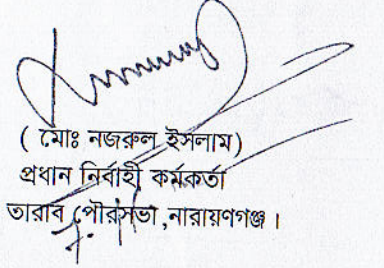 ( মোঃ নজরুল ইসলাম)
প্রধান নির্বাহী কর্মকর্তা
তারাব পৌরসভা,নারায়ণগঞ্জ।